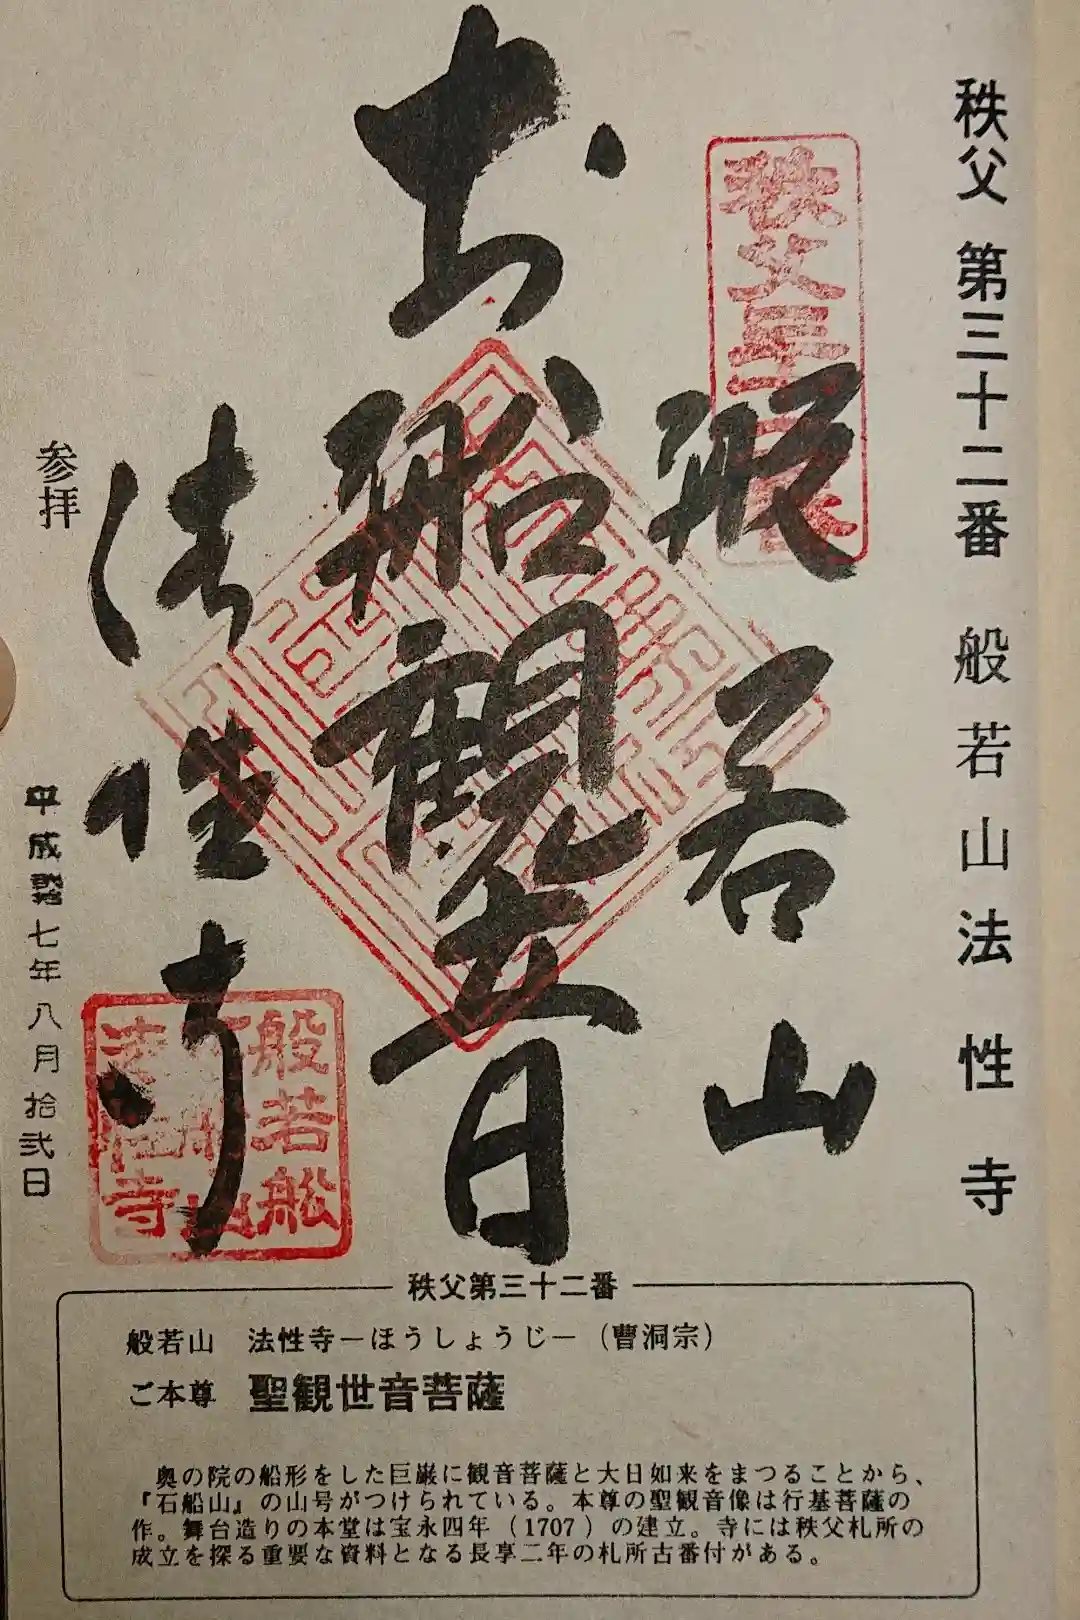 秩父 第三十二番 般若山法性寺
秩父三十
般若山
お船観音
法性寺
般若船
法性寺
参拝
平成 七年八月拾弐日
秩父第三十二番
般若山 法性寺−ほうしょうじ−（曹洞宗）
ご本尊 聖観世音菩薩
奥の院の船形をした巨巌に観音菩薩と大日如来をまつることから、
『石船山』の山号がつけられている。本尊の聖観音像は行基菩薩の
作。舞台造りの本堂は宝永四年（1707）の建立。寺には秩父札所の
成立を探る重要な資料となる長享二年の札所古番付がある。